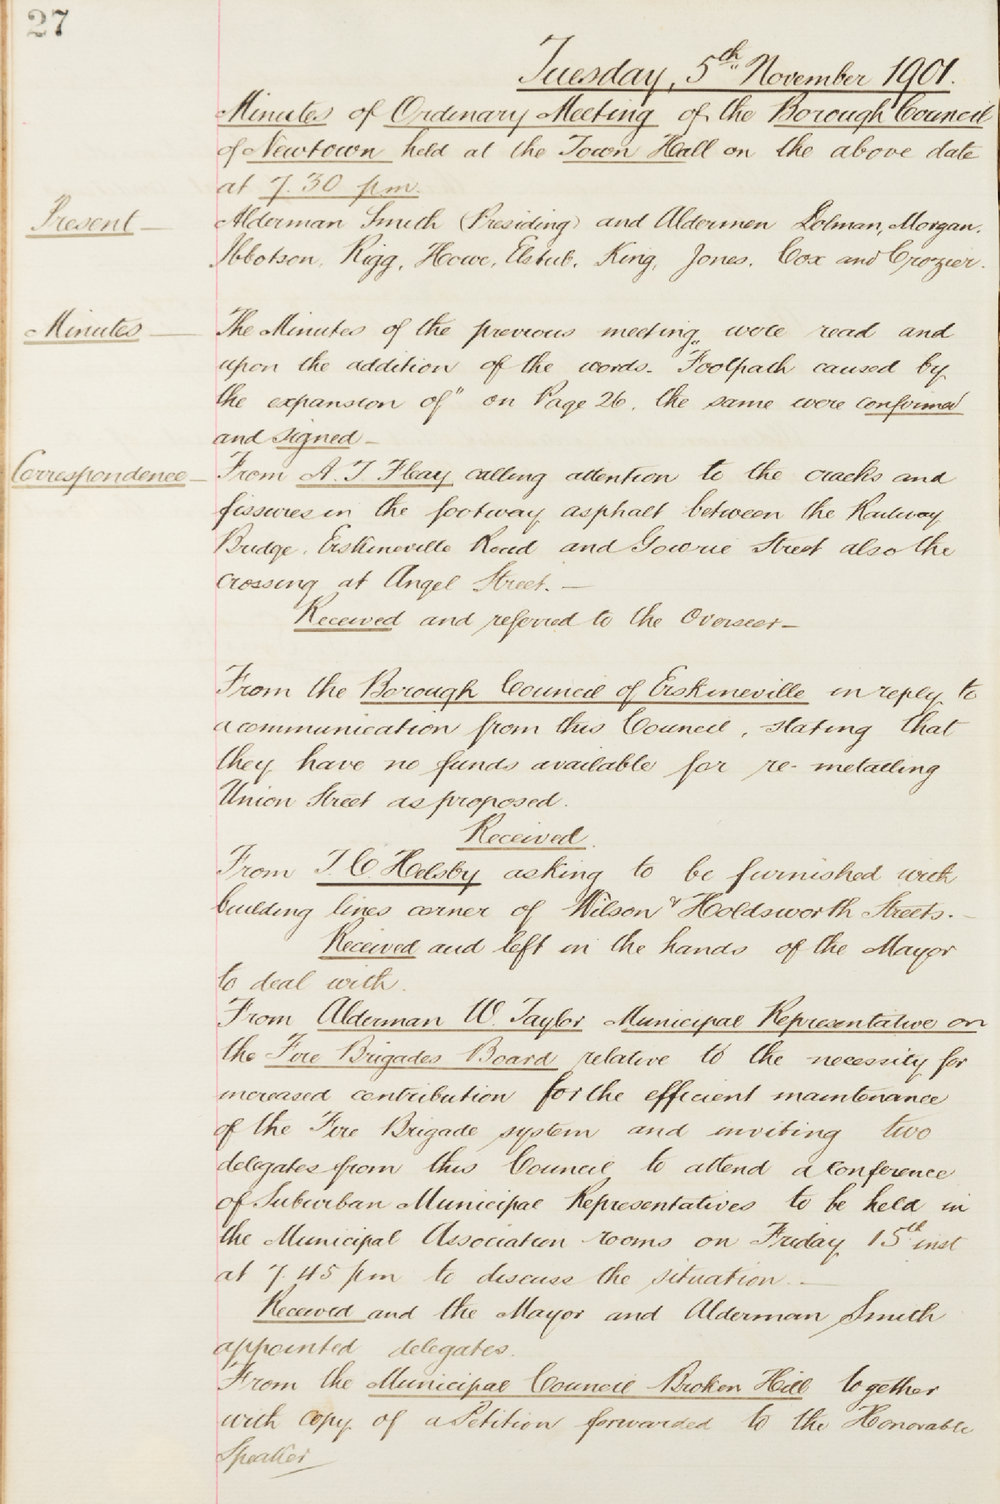 27
Tuesday, 5th November 1901.
Minutes of Ordinary Meeting of the Borough Council
of Newtown held at the Town Hall on the above date
at 7.30 pm.
Present — Alderman Smith (Presiding) and Aldermen Dolman, Morgan,
Ibbotson, Rigg, Howe, Elstub, King, Jones, Cox and Crozier.
Minutes — The Minutes of the previous meeting, were read and
upon the addition of the words. "Footpath caused by
the expansion of" on Page 26, the same were confirmed
and signed —
Correspondence — From A. J. Fbay calling attention to the cracks and
fissures in the footway asphalt between the Railway
Bridge, Erskineville Road and Gowrie Street also the
crossing at Angel Street. —
Received and referred to the Overseer —
From the Borough Council of Erskineville in reply to
a communication from this Council, stating that
they have no funds available for re-metalling
Union Street as proposed.
Received.
From J C Helsby asking to be furnished with
building lines corner of Wilson & Holdsworth Streets. —
Received and left in the hands of the Mayor
to deal with.
From Alderman W. Taylor Municipal Representative on
the Fire Brigades Board relative to the necessity for
increased contribution for the efficient maintenance
of the Fire Brigade system and inviting two
delegates from this Council to attend a conference
of Suburban Municipal Representatives to be held in
the Municipal Association rooms on Friday 15th inst
at 7.45 pm to discuss the situation. —
Received and the Mayor and Alderman Smith
appointed delegates.
From the Municipal Council Broken Hill together
with copy of a Petition forwarded to the Honorable
Speaker